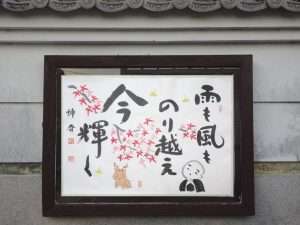 雨も風も
のり越え
今
輝く